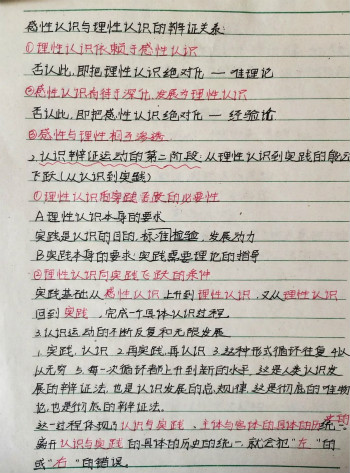 感性认识与理性认识的辩证关系:
①理性认识依赖于感性认识
否认此,即把理性认识绝对化 — 唯理论
②感性认识有待于深化,发展为理性认识
否认此,即把感性认识绝对化 — 经验论
③感性与理性相互渗透
2.认识辩证运动的第二阶段:从理性认识到实践的能动
飞跃(从认识到实践)
①理性认识向实践飞跃的必要性
A理性认识本身的要求
实践是认识的目的,标准检验,发展动力
B实践本身的要求:实践需要理论的指导
②理性认识向实践飞跃的条件
实践基础:从感性认识上升到理性认识,又从理性认识
回到实践,完成一个具体认识过程.
3.认识运动的不断反复和无限发展
1.实践,认识 2.再实践,再认识 3.这种形式循环往复 4以
从无穷 5.每一次循环都上升到新的水平,这是人类认识发
展的辩证法,也是认识发展的总规律,这是彻底的唯物
论,也是彻底的辩证法.
这一过程体现了认识与实践,主体与客体的具体的历史的
统一
离开认识与实践的具体的历史的统一,就会犯"左"的
或"右"的错误。